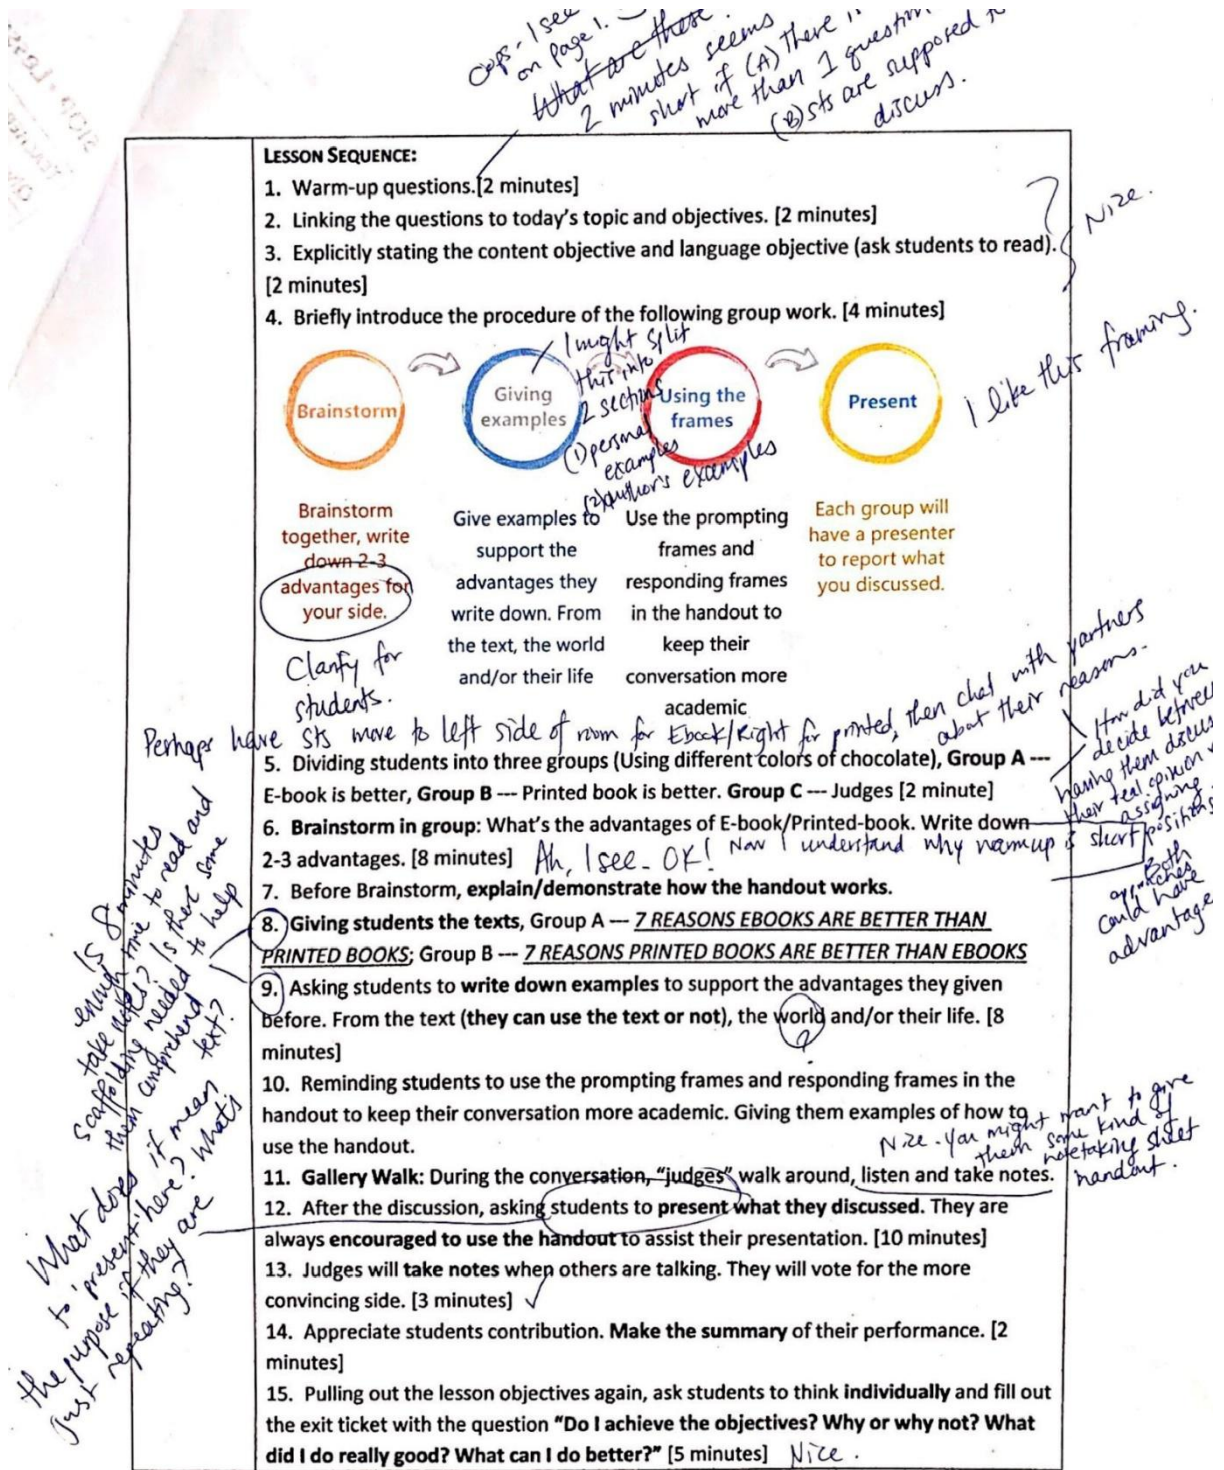 Oops - I see
on page 1.
What are these
2 minutes seems
short if (A) there
more than 1 question
(B) sts are supposed to
discuss.
LESSON SEQUENCE:
1. Warm-up questions.[2 minutes]
2. Linking the questions to today's topic and objectives. [2 minutes]
3. Explicitly stating the content objective and language objective (ask students to read).
[2 minutes]
Nize.
4. Briefly introduce the procedure of the following group work. [4 minutes]
I like this framing.
Brainstorm
Giving
examples
Using the
frames
Present
I might split
this into
2 sections
(1) personal
examples
(2) author's examples
Brainstorm
together, write
down 2-3
advantages for
your side.
Give examples to
support the
advantages they
write down. From
the text, the world
and/or their life
Use the prompting
frames and
responding frames
in the handout to
keep their
conversation more
academic
Each group will
have a presenter
to report what
you discussed.
Clarify for
students.
Perhaps have sts move to left side of room for Ebook/Right for printed, then chat with partners
about their reasons.
5. Dividing students into three groups (Using different colors of chocolate), Group A ---
E-book is better, Group B --- Printed book is better. Group C --- Judges [2 minute]
How did you
decide between
having them discuss
their real opinion
assigning
positions
Both
approaches
could have
advantage
6. Brainstorm in group: What's the advantages of E-book/Printed-book. Write down
2-3 advantages. [8 minutes]
Ah, I see - OK! Now I understand why warmup is short
7. Before Brainstorm, explain/demonstrate how the handout works.
8. Giving students the texts, Group A --- 7 REASONS EBOOKS ARE BETTER THAN
PRINTED BOOKS; Group B --- 7 REASONS PRINTED BOOKS ARE BETTER THAN EBOOKS
9. Asking students to write down examples to support the advantages they given
before. From the text (they can use the text or not), the world and/or their life. [8
minutes]
?
Is 8 minutes
enough time to read and
take notes? Is there some
scaffolding needed to help
them comprehend text?
10. Reminding students to use the prompting frames and responding frames in the
handout to keep their conversation more academic. Giving them examples of how to
use the handout.
Nize. You might want to give
them some kind of
notetaking sheet
handout.
11. Gallery Walk: During the conversation, "judges" walk around, listen and take notes.
12. After the discussion, asking students to present what they discussed. They are
always encouraged to use the handout to assist their presentation. [10 minutes]
What does it mean
to 'present' here? What's
the purpose if they are
just repeating?
13. Judges will take notes when others are talking. They will vote for the more
convincing side. [3 minutes] ✓
14. Appreciate students contribution. Make the summary of their performance. [2
minutes]
15. Pulling out the lesson objectives again, ask students to think individually and fill out
the exit ticket with the question "Do I achieve the objectives? Why or why not? What
did I do really good? What can I do better?" [5 minutes] Nice.